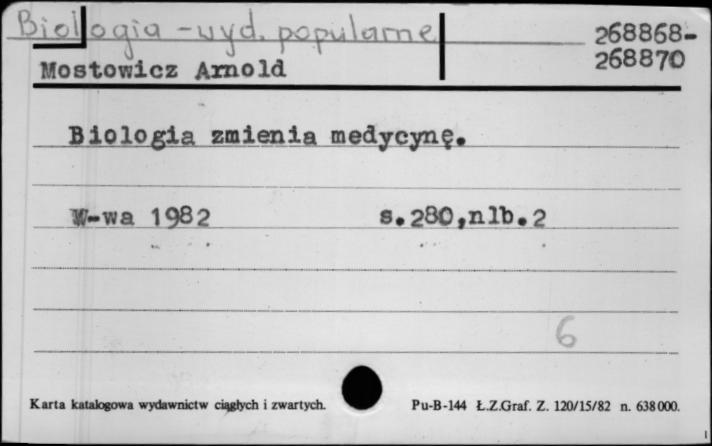 Biologia - wyd. popularne
268868-
268870
Mostowicz Arnold
Biologia zmienia medycynę.
W-wa 1982 s.280,nlb.2
6
Karta katalogowa wydawnictw ciągłych i zwartych. Pu-B-144 Ł.Z.Graf. Z. 120/15/82 n. 638000.